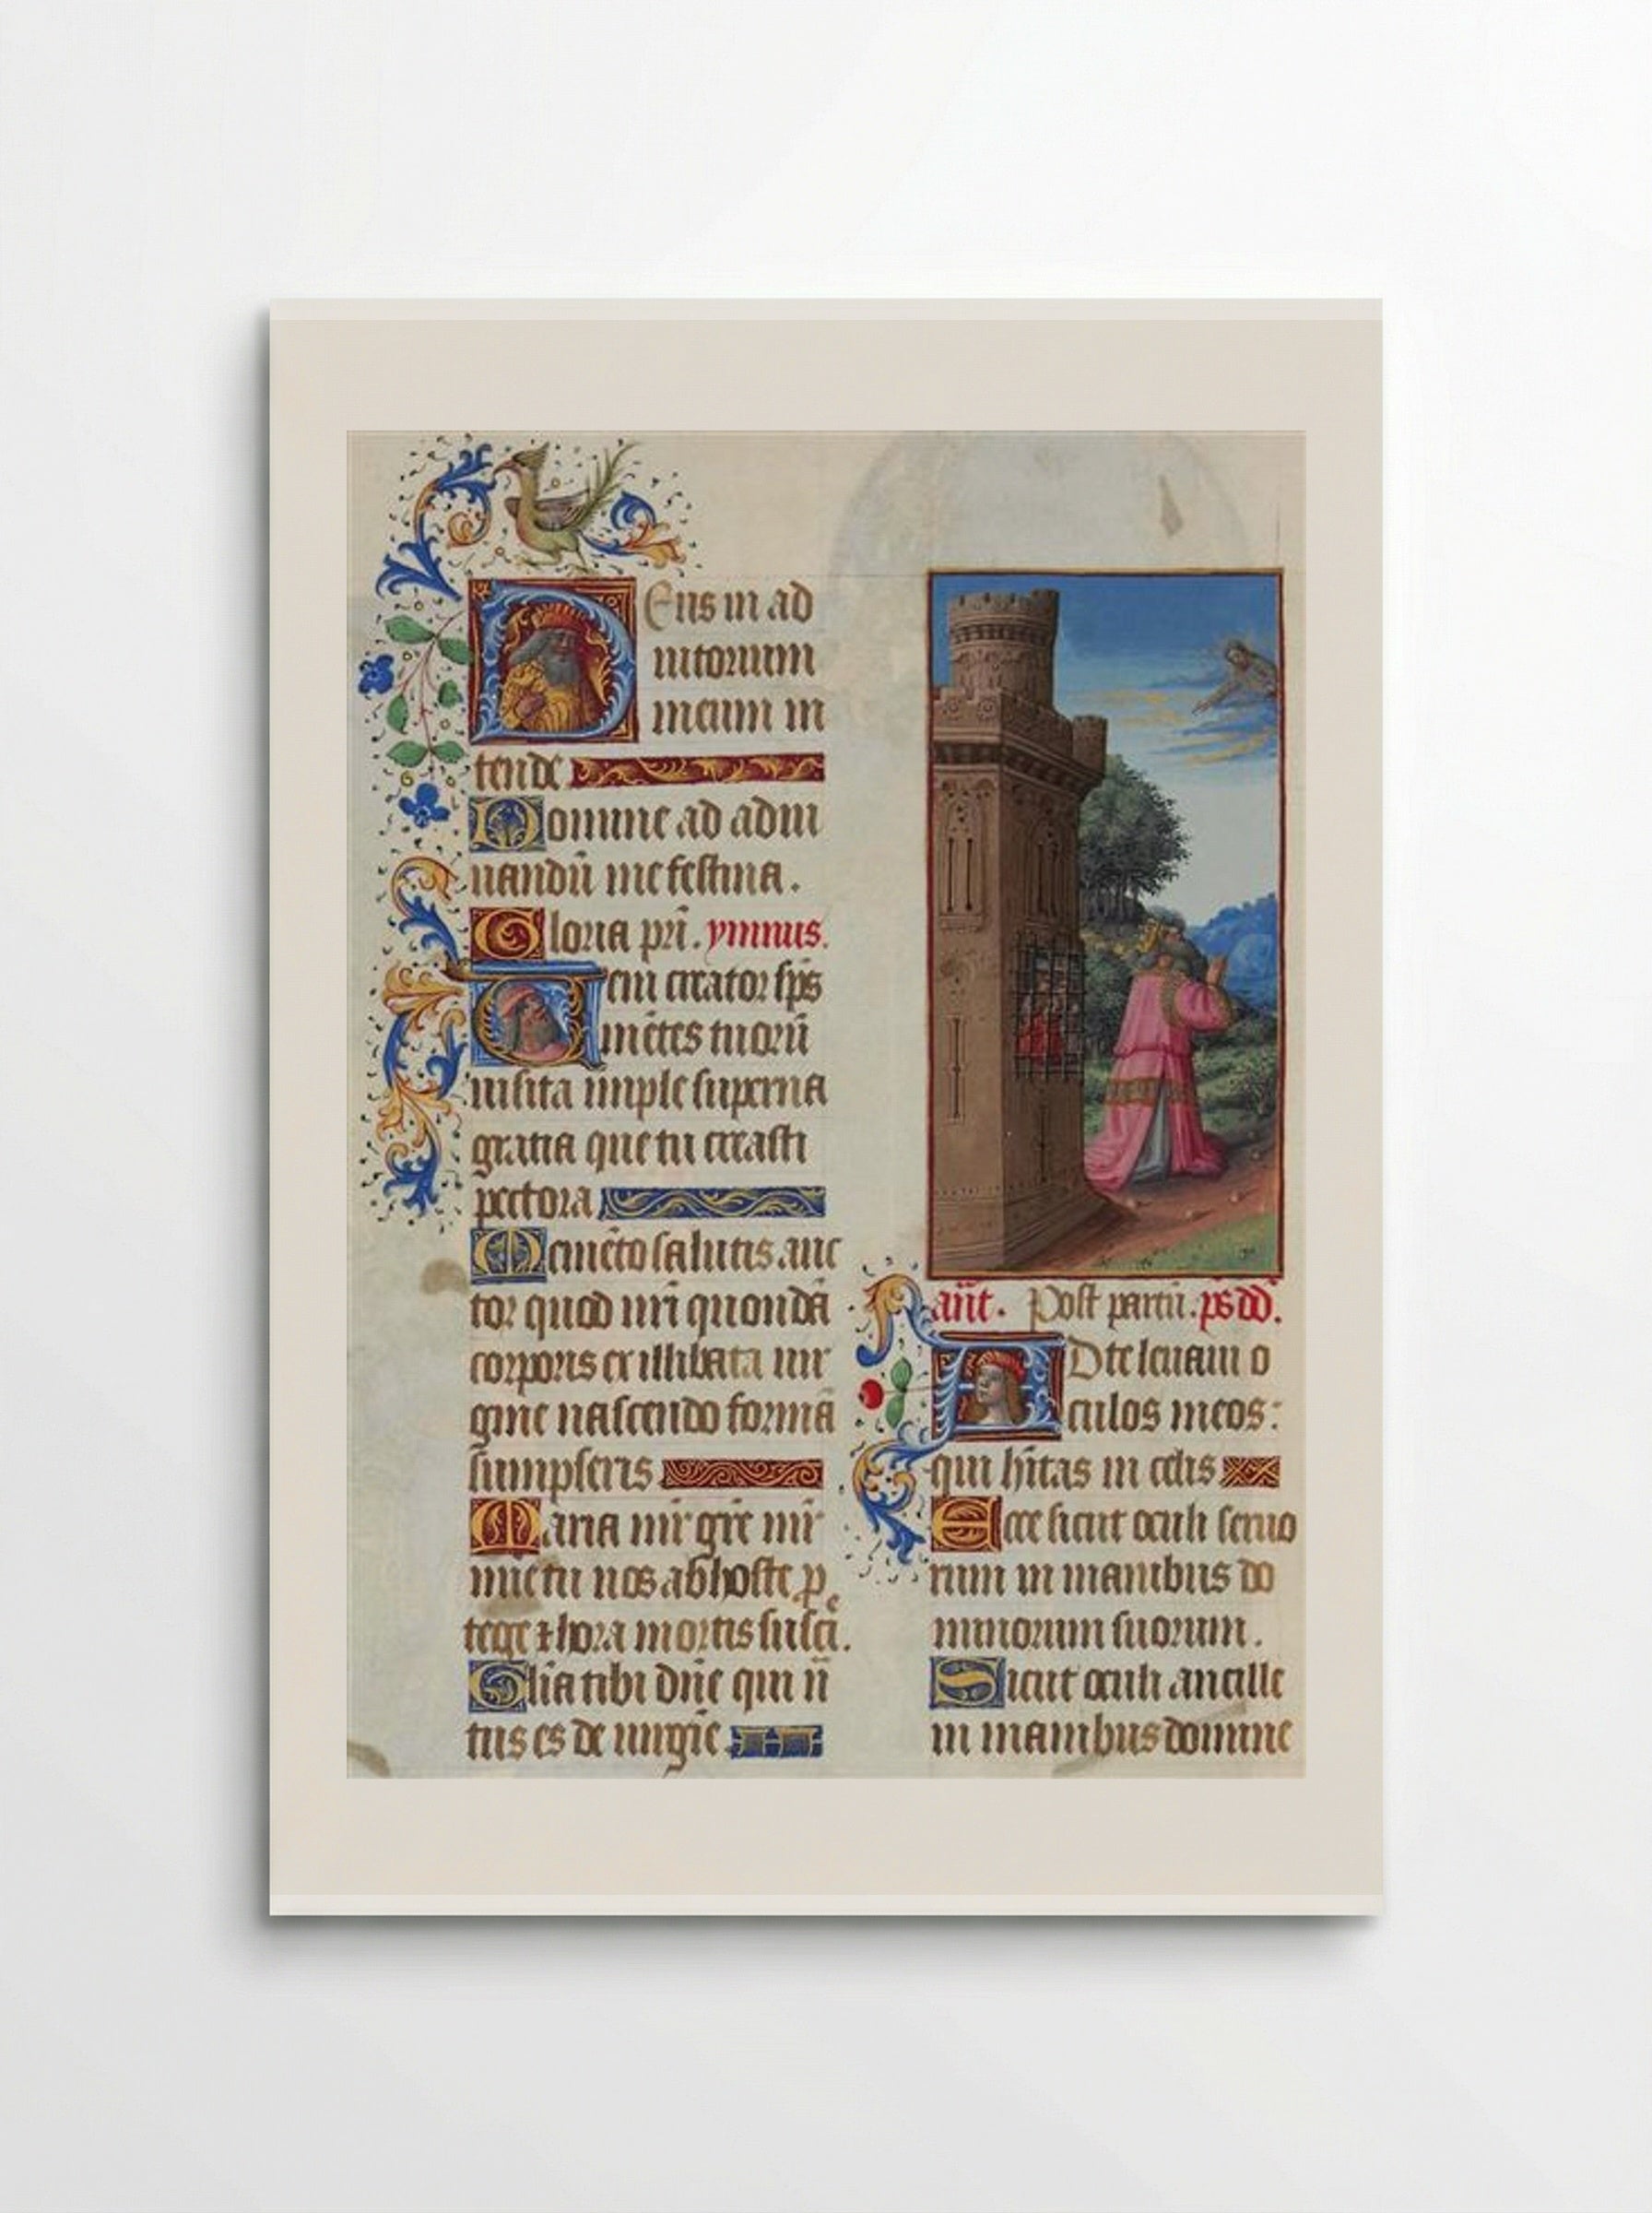 Deus in ad
iutorium
meum in
tende
Domine ad adiu
uandū me festina.
Gloria pri̅. ymnus.
Veni creator sp̅s
mētes tuorū
uisita imple superna
gratia que tu creasti
pectora
Memēto salutis auc
tor quod nr̅i quondā
corporis ex illibata uir
gine nascendo formā
sumpseris
Maria mr̅ gr̅e mr̅
mie tu nos ab hoste p
tege ⁊ hora mortis susci.
Gl̅ia tibi dn̅e qui n̅
tus es de uirgīe
an̅t. Post partū. ps dd.
AD te leuaui o
culos meos:
qui hi̅tas in celis
Ecce sicut oculi seruo
rum in manibus do
minorum suorum.
Sicut oculi ancille
in manibus domine